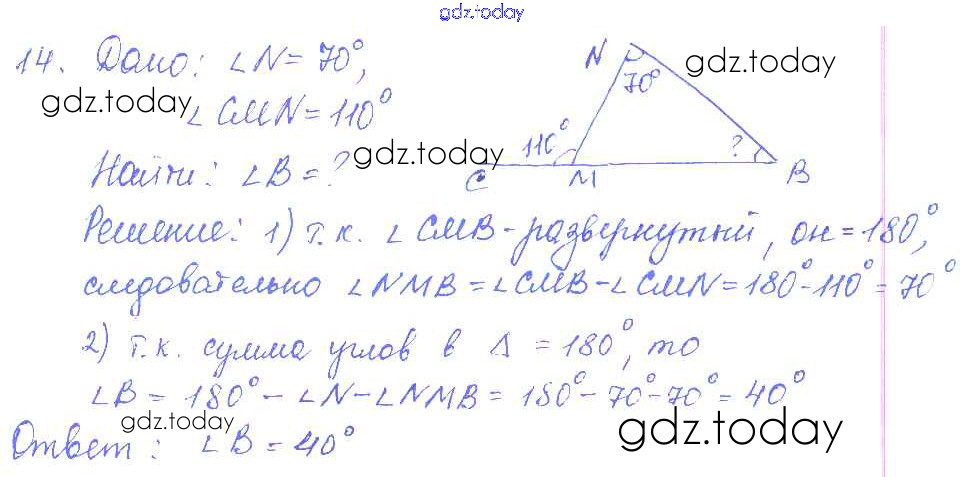 gdz.today
14. Дано: ∠N = 70°,
gdz.today
∠CMN = 110°
Найти: ∠B = ?
N
70°
gdz.today
110°
gdz.today
?
C
M
B
Решение: 1) т.к. ∠CMB - развернутый, он = 180°,
следовательно ∠NMB = ∠CMB - ∠CMN = 180° - 110° = 70°
2) т.к. сумма углов в Δ = 180°, то
∠B = 180° - ∠N - ∠NMB = 180° - 70° - 70° = 40°
gdz.today
gdz.today
Ответ: ∠B = 40°